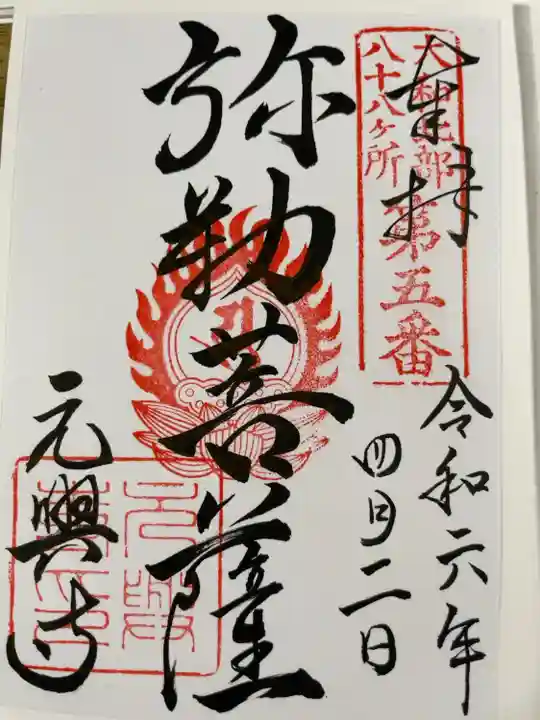 奉拝
大和北部
八十八ヶ所
第五番
令和六年
四月二日
弥勒菩薩
元興寺